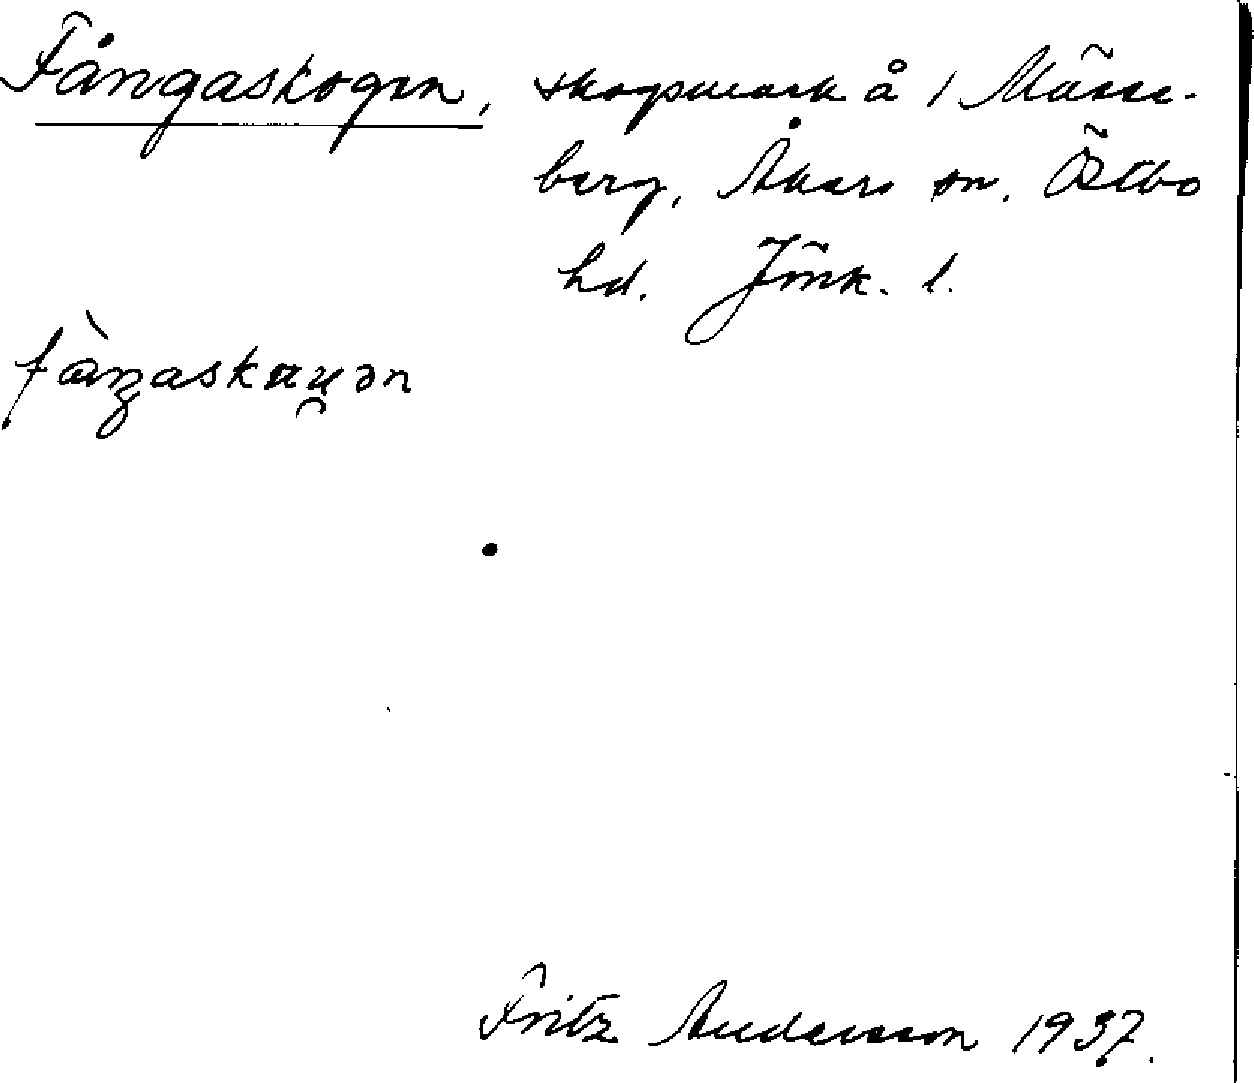 Fångaskogen, skogsmark å 1 Mässe-
berg, Åkers sn. Östbo
hd. Jönk. l.
fàŋaskau̯ən
Fritz Andersson 1937.